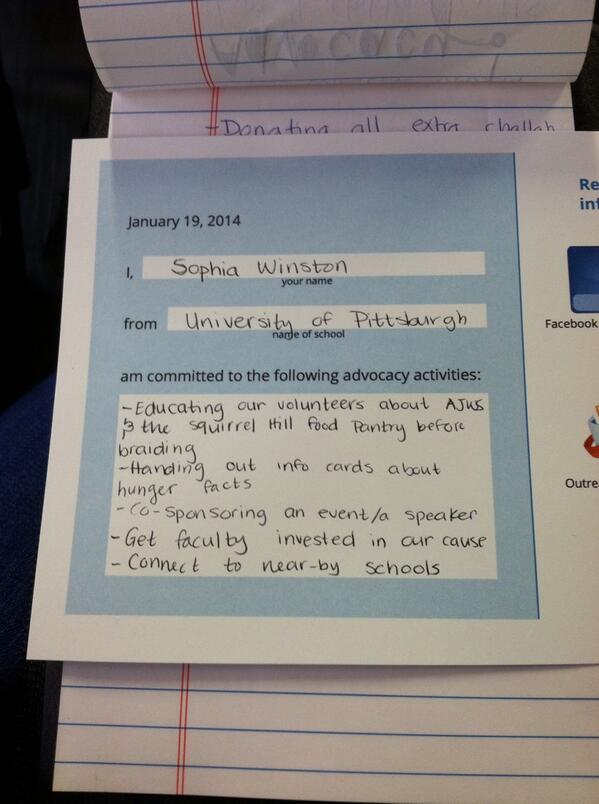 -Donating all extra challah
January 19, 2014
I, Sophia Winston
your name
from University of Pittsburgh
name of school
am committed to the following advocacy activities:
-Educating our volunteers about AJWS
& the Squirrel Hill Food Pantry before
braiding
-Handing out info cards about
hunger facts
-Co-sponsoring an event/a speaker
-Get faculty invested in our cause
-Connect to near-by schools
Re
inf
Facebook
Outre